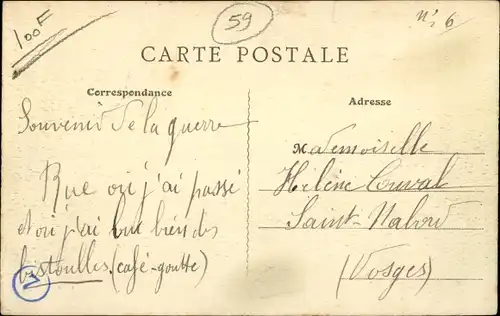 100F
59
N°: 6
CARTE POSTALE
Correspondance
Adresse
Souvenir de la guerre
Rue où j'ai passé
et où j'ai bu bien des
bistoulles (café-goutte)
Mademoiselle
Hélène Couval
Saint-Nabord
(Vosges)